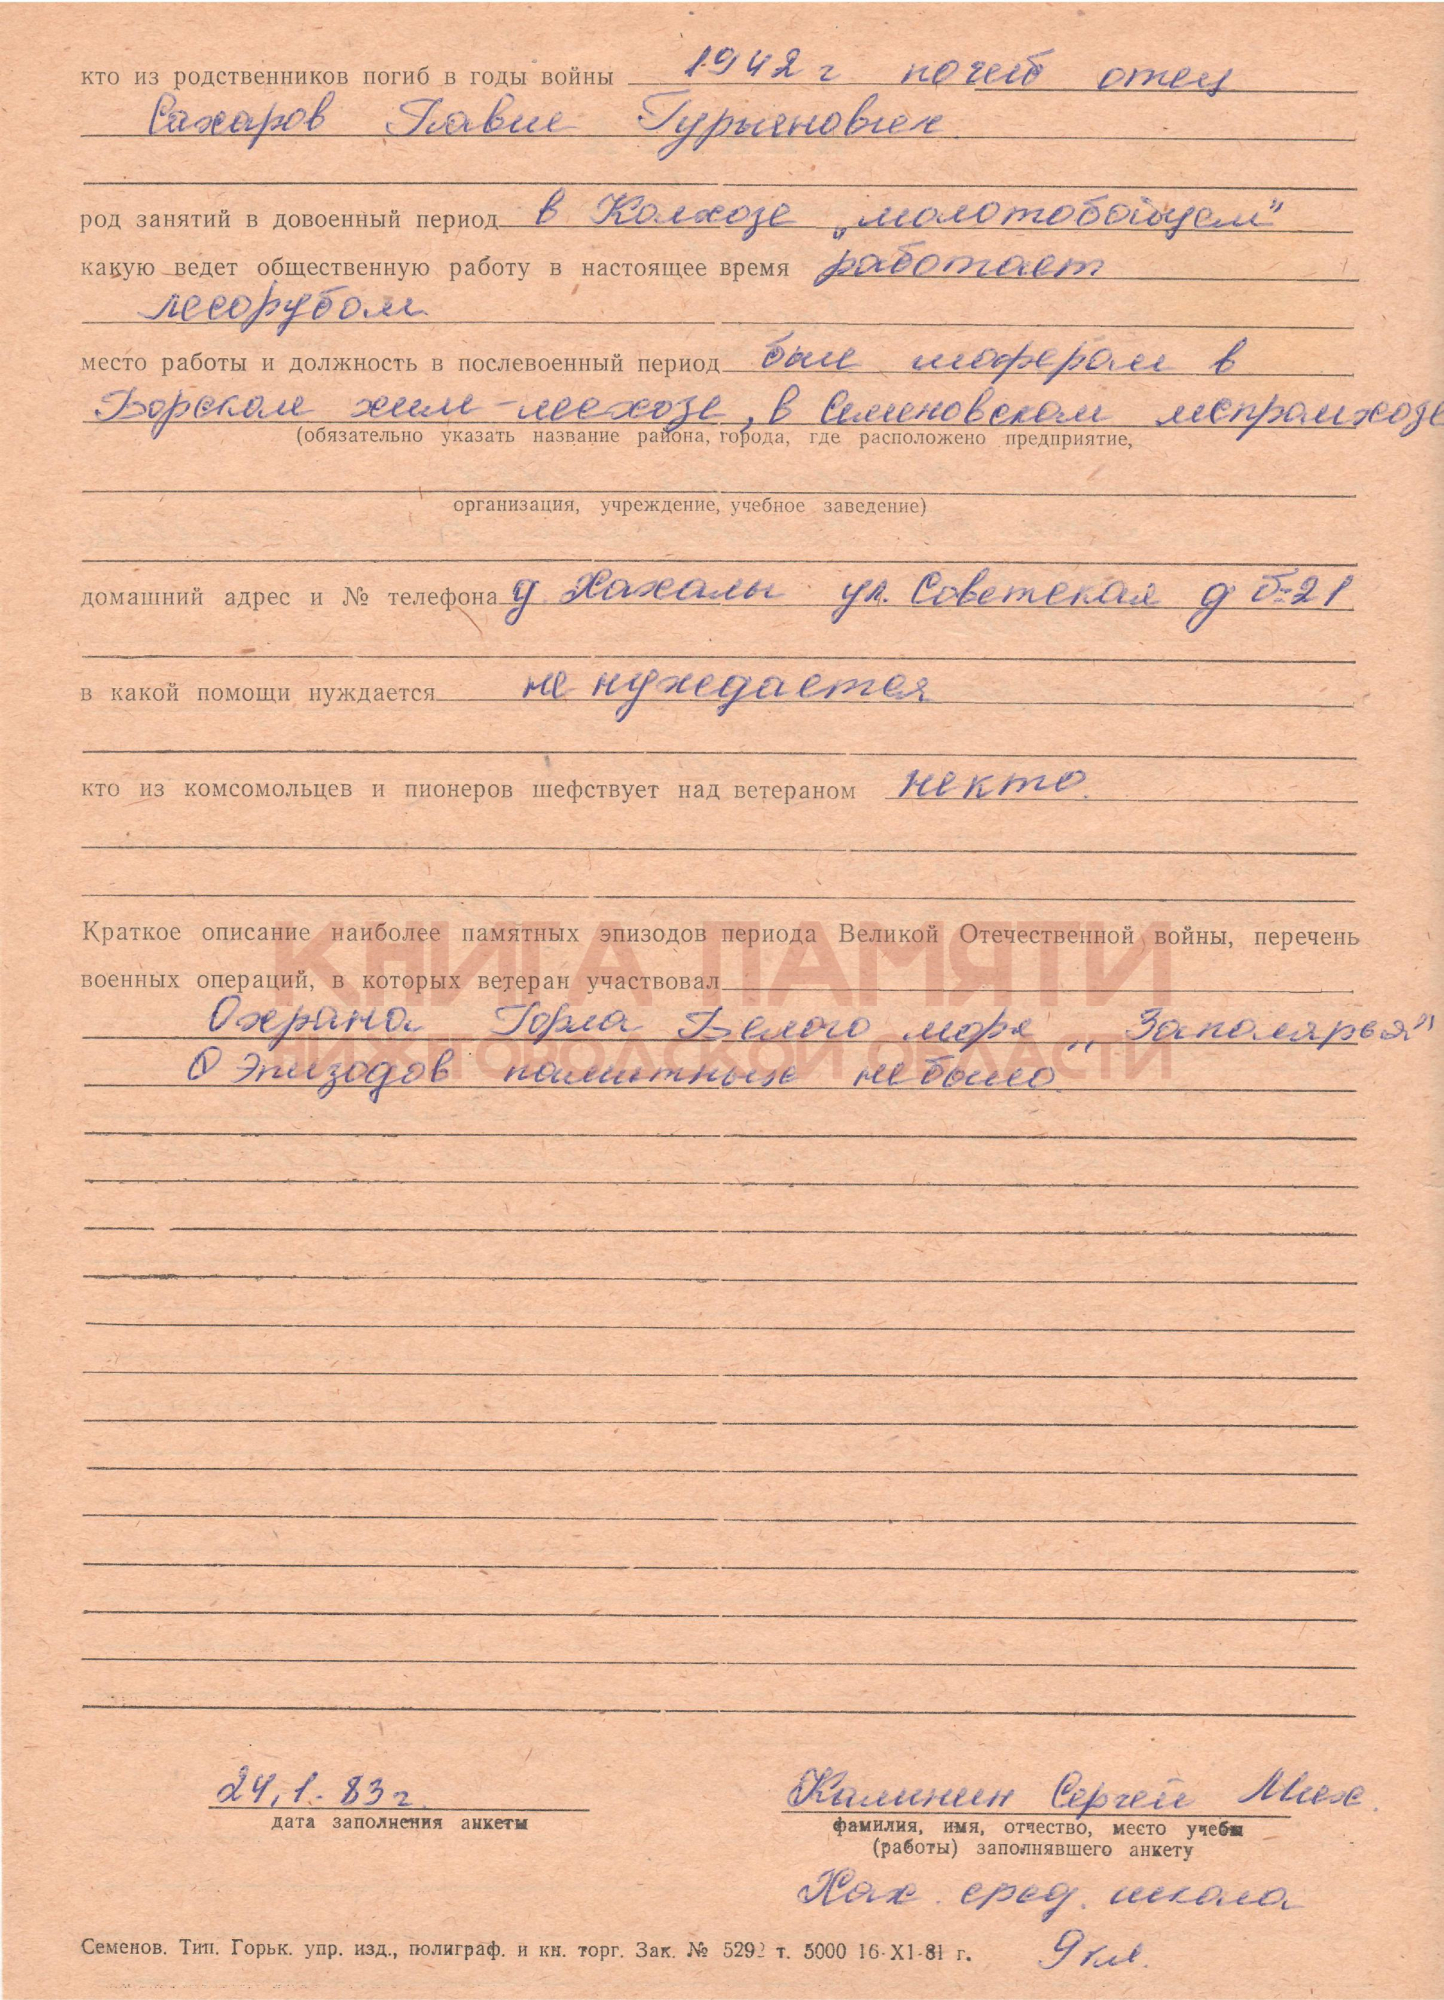 кто из родственников погиб в годы войны 1942 г погиб отец
Сахаров Павел Гурьянович
род занятий в довоенный период в Колхозе „молотобойцем"
какую ведет общественную работу в настоящее время работает
лесорубом
место работы и должность в послевоенный период был шофером в
Борском хим-лесхозе, в Семеновском леспромхозе
(обязательно указать название района, города, где расположено предприятие,
организация, учреждение, учебное заведение)
домашний адрес и № телефона д Хахалы ул. Советская д
в какой помощи нуждается не нуждается
кто из комсомольцев и пионеров шефствует над ветераном некто.
КНИГА ПАМЯТИ
Краткое описание наиболее памятных эпизодов периода Великой Отечественной войны, перечень
военных операций, в которых ветеран участвовал
Охрана Горла Белого моря „Заполярья"
НИЖЕГОРОДСКОЙ ОБЛАСТИ
Эпизодов памятных не было.
24.1.83 г. Калинин Сергей Мих.
дата заполнения анкеты фамилия, имя, отчество, место учебы
(работы) заполнявшего анкету
Хах. сред. школа
Семенов. Тип. Горьк. упр. изд., полиграф. и кн. торг. Зак. № 5292 т. 5000 16-XI-81 г. 9 кл.